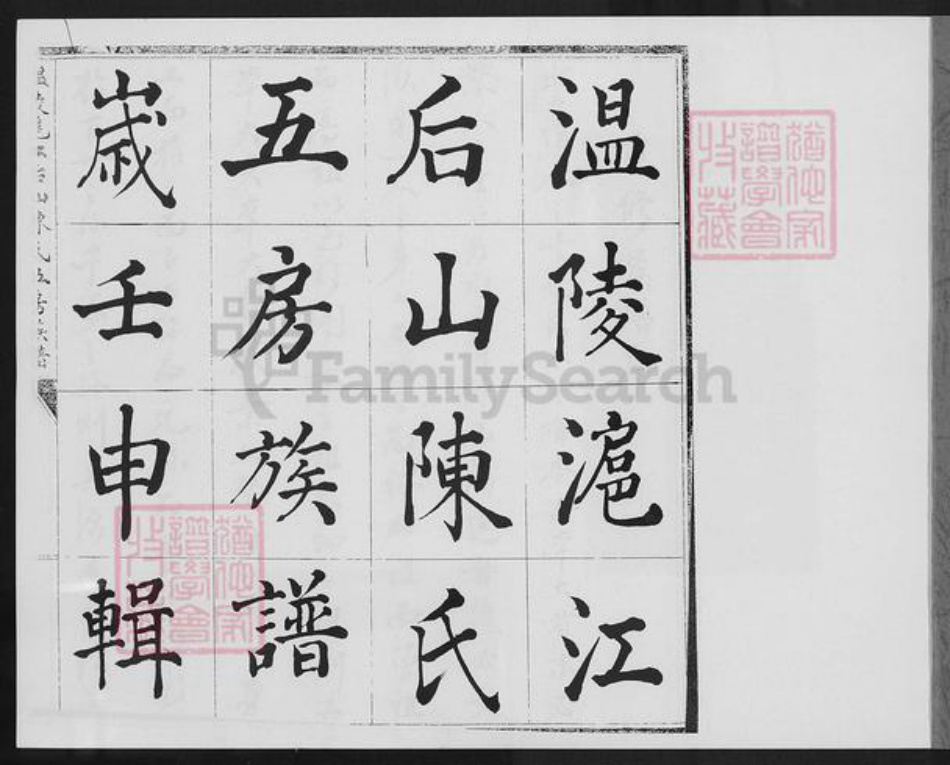 温陵滬江
后山陳氏
五房族譜
歲壬申輯
猶他家
譜學會
收藏
猶他家
譜學會
收藏
FamilySearch